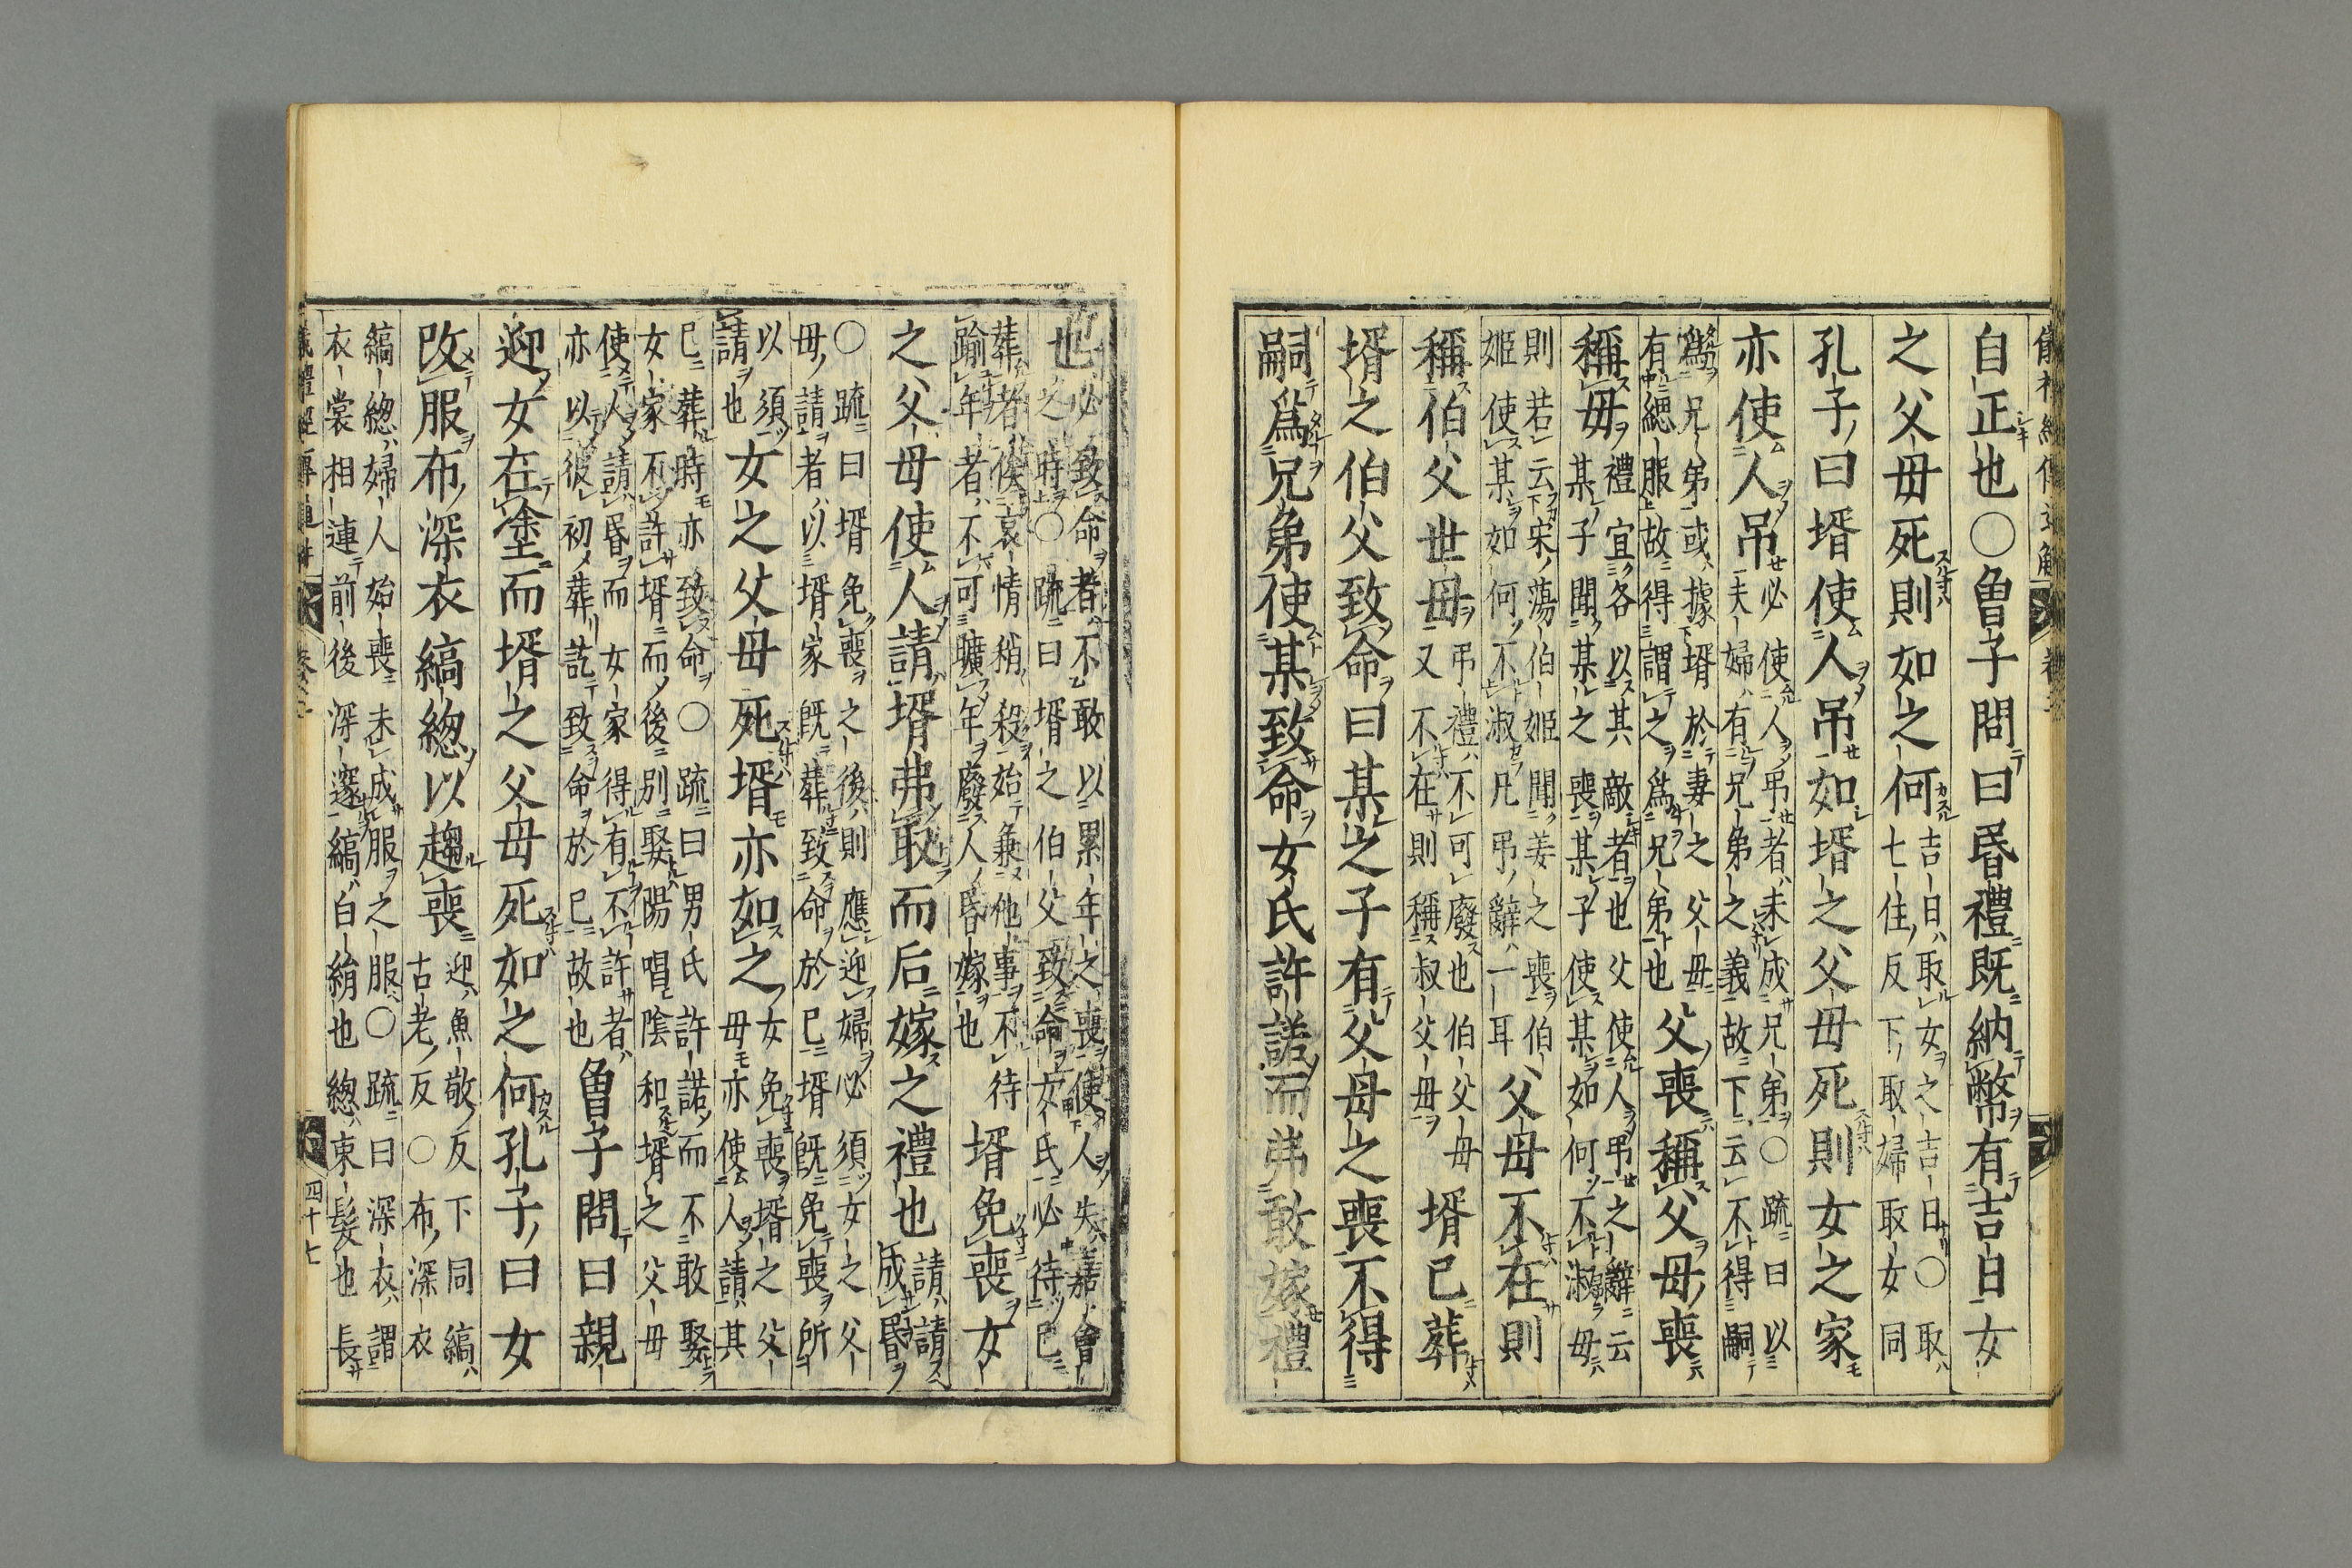 自正也〇曾子問曰昏禮既納幣有吉日女
之父母死則如之何吉日取女之吉日〇取
七住反下取婦取女同
孔子曰壻使人吊如壻之父母死則女之家
亦使人吊必使人弔者未成兄弟〇疏曰以
夫婦有兄弟之義故下云不得嗣
爲兄弟或據壻於妻之父母
有緦服故得謂之爲兄弟也父喪稱父母喪
稱母禮宜各以其敵者也父使人弔之辭云
某子聞某之喪某子使某如何不淑母
則若云宋蕩伯姬聞姜之喪伯
姬使某如何不淑凡弔辭一耳父母不在則
稱伯父世母弔禮不可廢也伯父母
又不在則稱叔父母壻已葬
壻之伯父致命曰某之子有父母之喪不得
嗣爲兄弟使某致命女氏許諾而弗敢嫁禮
也必致命者不敢以累年之喪使人失嘉會
之時〇疏曰壻之伯父致命女氏必待已
葬者俟哀情稍殺始兼他事不待
踰年者不可曠年廢人昏嫁也壻免喪女
之父母使人請壻弗取而后嫁之禮也請請
成昏
〇疏曰壻免喪之後則應迎婦必須女之父
母請者以壻家既葬致命於已壻既免喪所
以須
請也女之父母死壻亦如之女免喪壻之父
母亦使人請其
已葬時亦致命〇疏曰男氏許諾而不敢娶
女家不許壻而後別娶陽唱陰和壻之父母
使人請昏而女家得有不許者
亦以彼初葬訖致命於已故也曾子問曰親
迎女在塗而壻之父母死如之何孔子曰女
改服布深衣縞緫以趨喪迎魚敬反下同縞
古老反〇布深衣
縞緫婦人始喪未成服之服〇疏曰深衣謂
衣裳相連前後深邃縞白絹也緫束髮也長
四十七